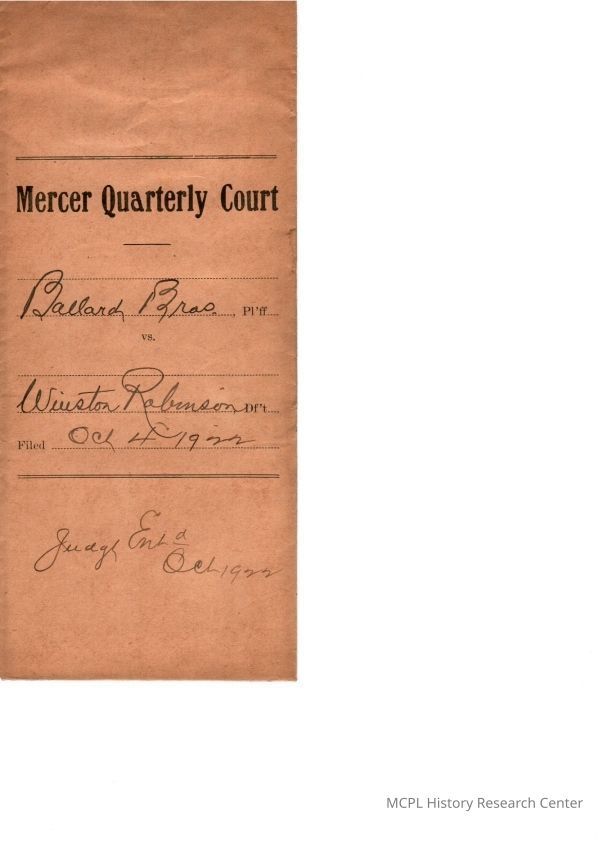 Mercer Quarterly Court
Ballard Bros., Pl'ff
vs.
Winston Robinson Df't.
Filed Oct 4 1922
Judgt Ent d
Oct 1922
MCPL History Research Center